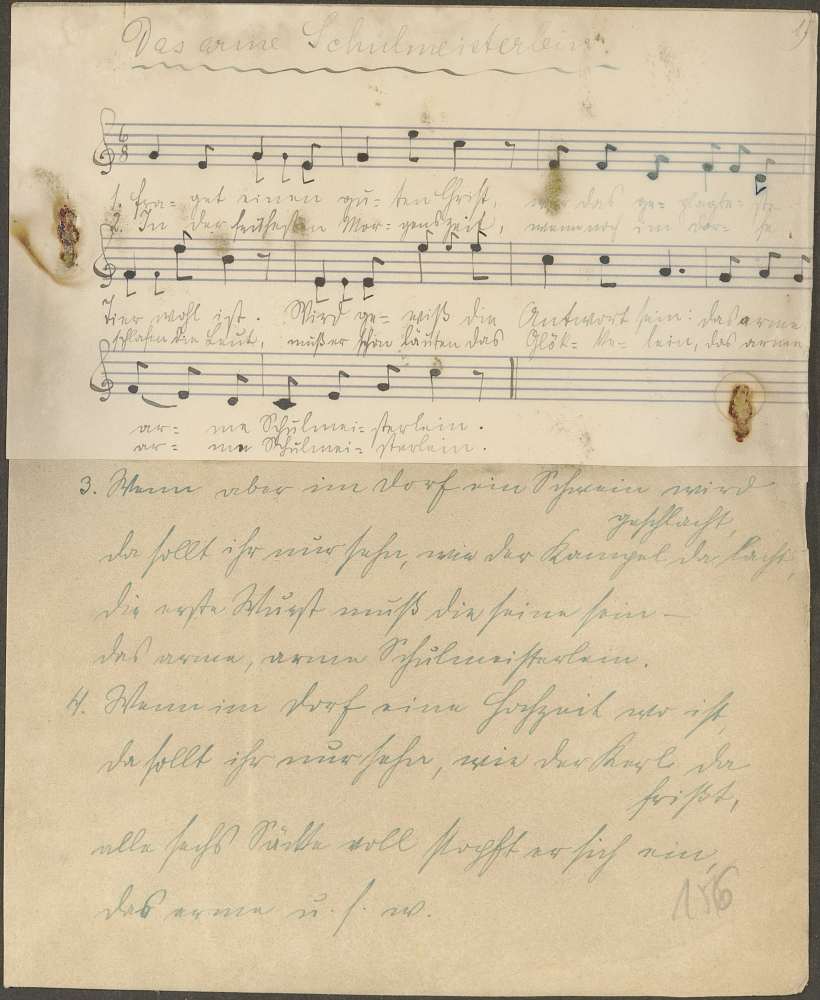 Das arme Schulmeisterlein.
6
8
1. Fra- get einen gu- ten Christ, wer das ge- plagte-
2. In der frühesten Mor- genszeit, wenn noch im Dor- fe
Tier wohl ist. Wird ge- wiß die Antwort sein: das arme
schlafen die Leut, muß er schon läuten das Glök- ke- lein, das arme
ar- me Schulmei- sterlein.
ar- me Schulmei- sterlein.
3. Wenn aber im Dorf ein Schwein wird
geschlacht,
da sollt ihr nur sehn, wie der Kampel da lacht;
die erste Wurst muß die seine sein –
das arme, arme Schulmeisterlein.
4. Wenn im Dorf eine Hochzeit wo ist,
da sollt ihr nur sehn, wie der Kerl da
frißt,
alle sechs Säcke voll stopft er sich ein,
das arme u. s. w.
156